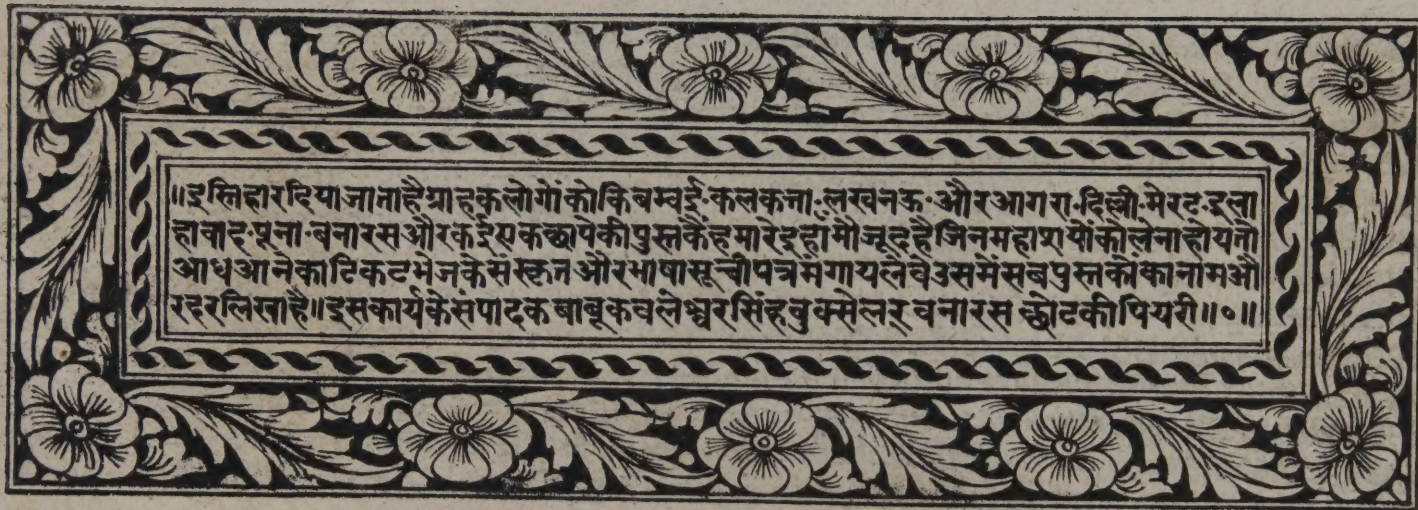 ॥इस्तिहारदियाजाताहैग्राहकलोगोंकोकिबम्बई·कलकत्ता·लखनऊ·औरआगरा·दिल्ली·मेरट·इला
हाबाद·पूना·बनारसऔरकईएकछापेकीपुस्तकेंहमारेइहाँमौजूदहैजिनमहाशयोंकोलेनाहोयतो
आधआनेकाटिकटभेजकेसंस्कृतऔरभाषासूचीपत्रमंगायलेवेउसमेंसबपुस्तकोंकानामऔ
रदरलिखाहै॥इसकार्यकेसंपादक बाबूकवलेश्वरसिंहबुक्सेलर् बनारस छोटकीपियरी॥०॥